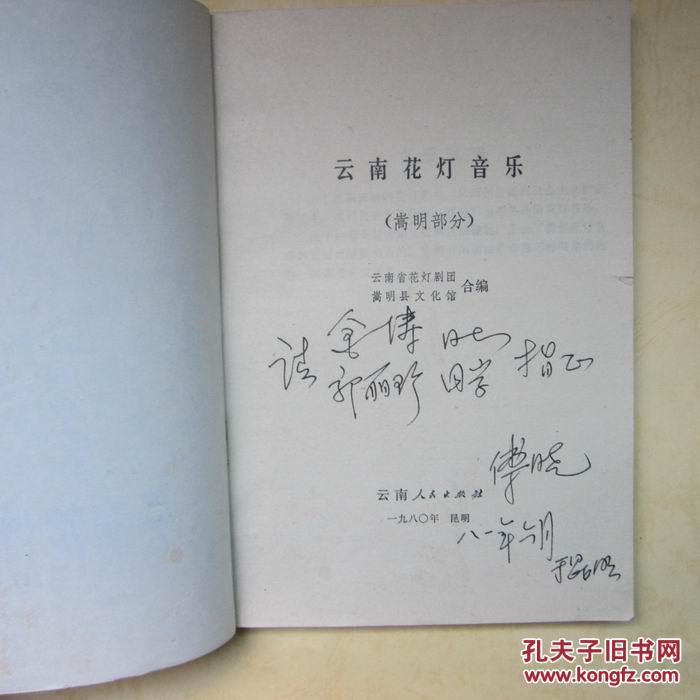 云南花灯音乐
(嵩明部分)
云南省花灯剧团
嵩明县文化馆 合编
请 指正
郭丽珍 同学
云南人民出版社
一九八〇年 昆明
八一年六月
于昆明
孔夫子旧书网
www.kongfz.com